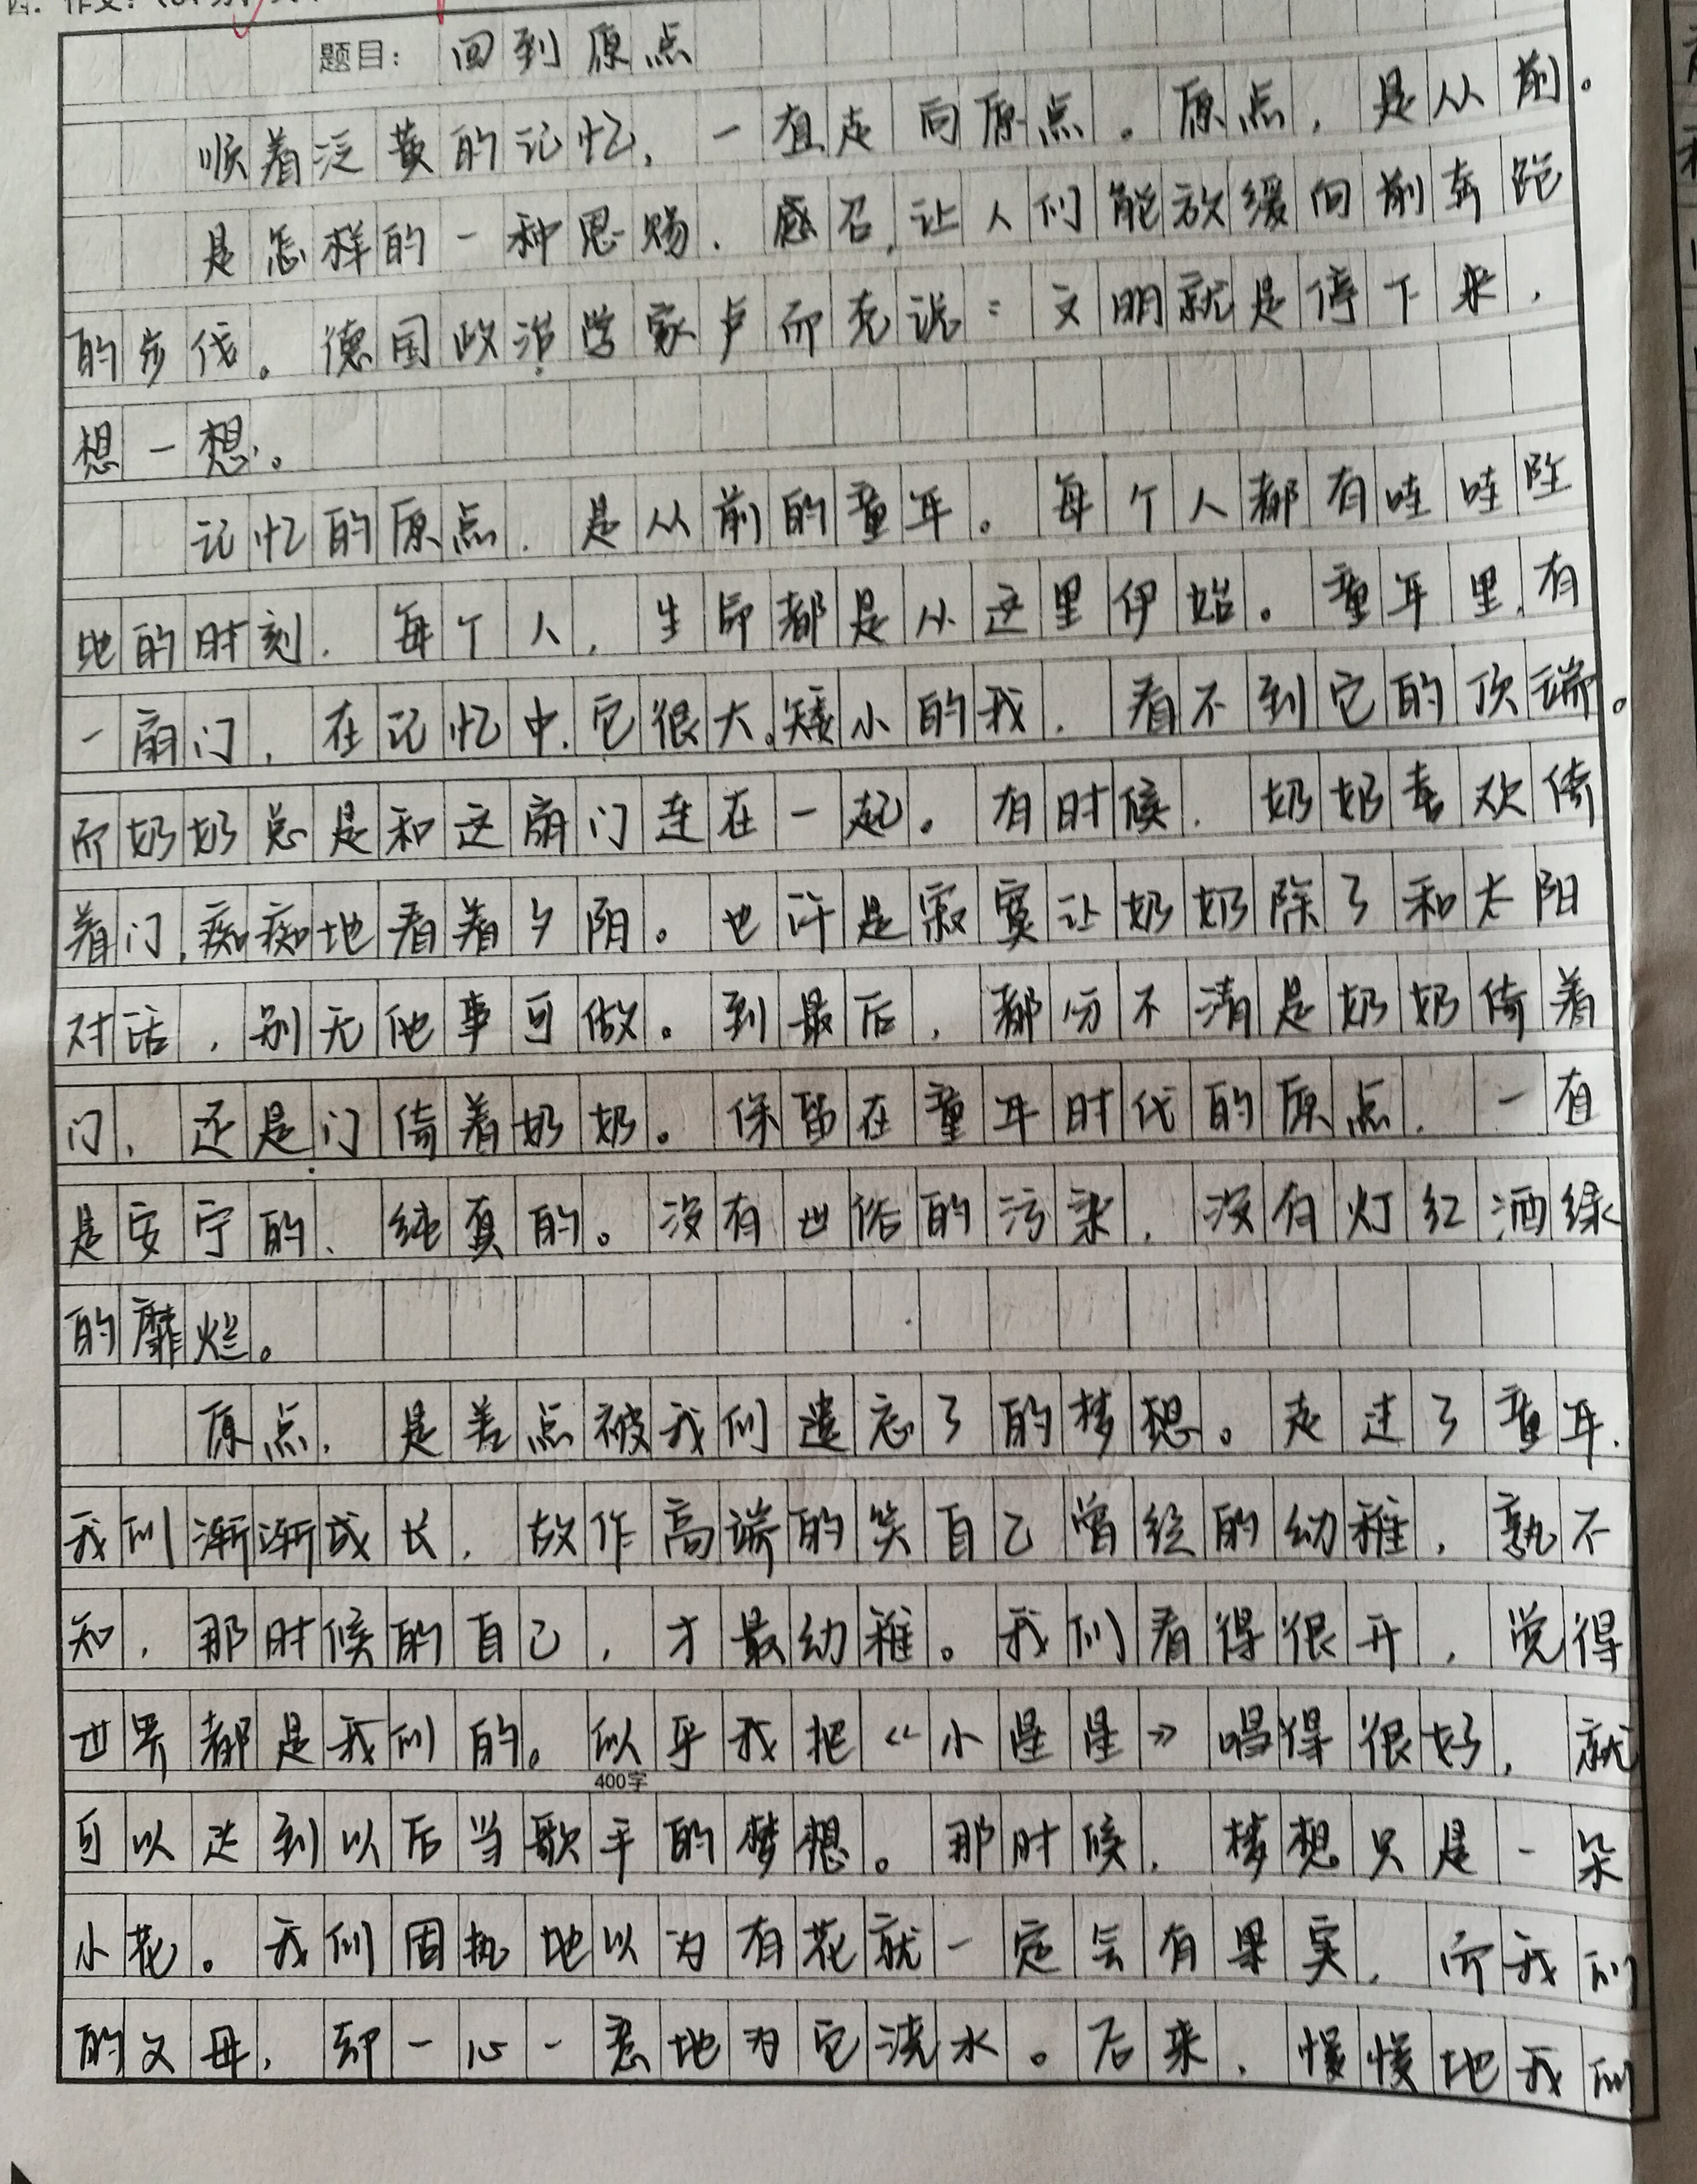 题目：回到原点
顺着泛黄的记忆，一直走向原点。原点，是从前。
是怎样的一种恩赐、感召，让人们能放缓向前奔跑
的步伐。德国政治学家卢而克说：文明就是停下来，
想一想。
记忆的原点，是从前的童年。每个人都有哇哇坠
地的时刻，每个人，生命都是从这里伊始。童年里，有
一扇门，在记忆中，它很大。矮小的我，看不到它的顶端。
而奶奶总是和这扇门连在一起。有时候，奶奶喜欢倚
着门，痴痴地看着夕阳。也许是寂寞让奶奶除了和太阳
对话，别无他事可做。到最后，都分不清是奶奶倚着
门，还是门倚着奶奶。保留在童年时代的原点，一直
是安宁的、纯真的。没有世俗的污染，没有灯红酒绿
的靡烂。
原点，是差点被我们遗忘了的梦想。走过了童年，
我们渐渐成长，故作高端的笑自己曾经的幼稚，孰不
知，那时候的自己，才最幼稚。我们看得很开，觉得
世界都是我们的。似乎我把《小星星》唱得很好，就
400字
可以达到以后当歌手的梦想。那时候，梦想只是一朵
小花。我们固执地以为有花就一定会有果实，而我们
的父母，却一心一意地为它浇水。后来，慢慢地我们